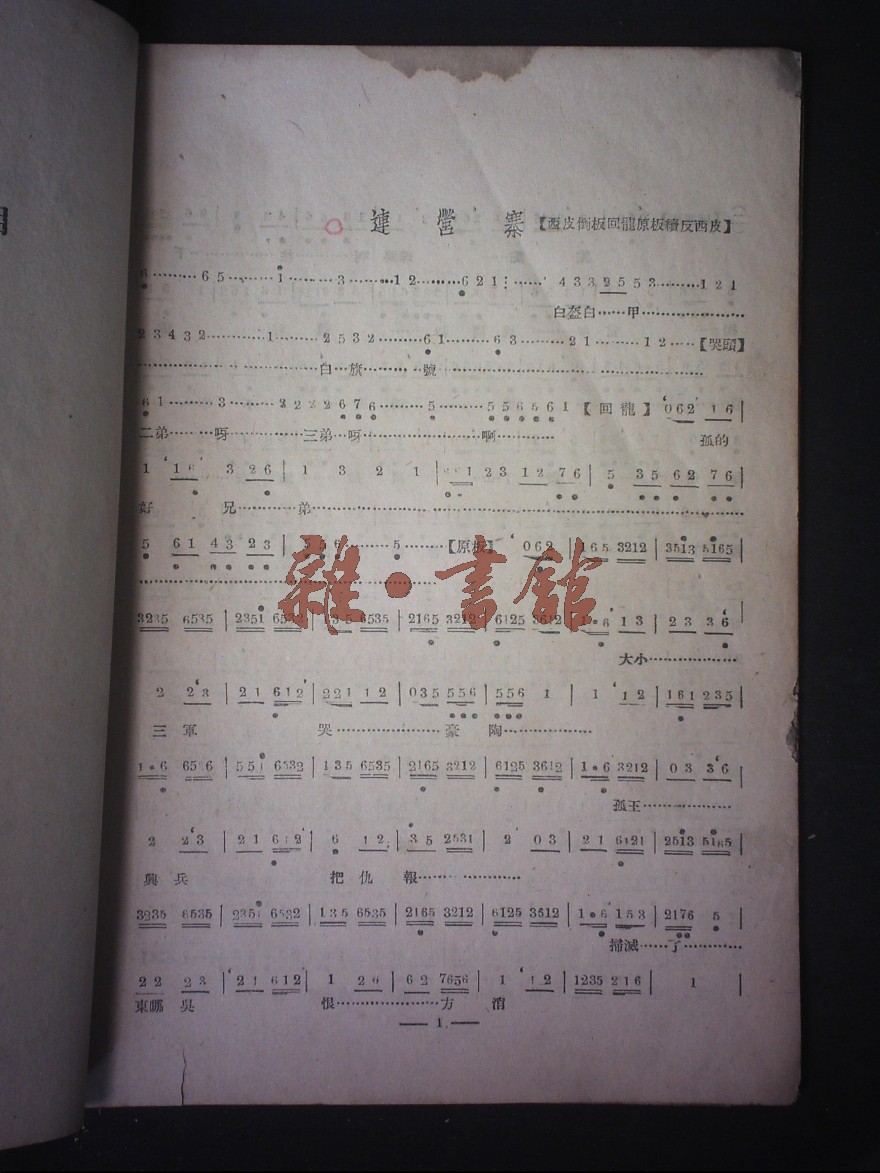 連營寨【西皮倒板回龍原板續反西皮】
6……65……1……3……12……621⋮……4332553……121
白盔白……甲……
23432……1……2532……61……63……21……12……【哭頭】
……白…旗……號……
61……3……2222676……5……556561【回龍】062 16
二弟……呀……三弟…呀……啊……孤的
1 16 3 26 | 1 3 2 1 | 23 12 76 | 5 35 62 76
好 兄……弟……
5 61 43 23 | 556……5……【原板】062 | 165 3212 | 3513 5165
3235 6535 | 2351 6532 | 135 6535 | 2165 3212 | 6125 3612 | 1·6 13 | 23 36
大小……
2 23 | 21 612 | 221 12 | 035 556 | 556 1 | 1 12 | 161 235
三軍 哭……豪 陶……
1·6 656 | 551 6532 | 135 6535 | 2165 3212 | 6125 3612 | 1·6 3212 | 03 36
孤王……
2 23 | 21 612 | 6 12 | 35 2531 | 2 03 | 21 6121 | 2513 5165
興兵 把仇報……
3235 6535 | 2351 6532 | 135 6535 | 2165 3212 | 6125 3512 | 1·6 153 | 2176 5
掃滅……了……
22 23 | 21 612 | 1 26 | 62 7656 | 1 12 | 1235 216 | 1
東哪吳 恨……方 消
— 1 —
雜·書館